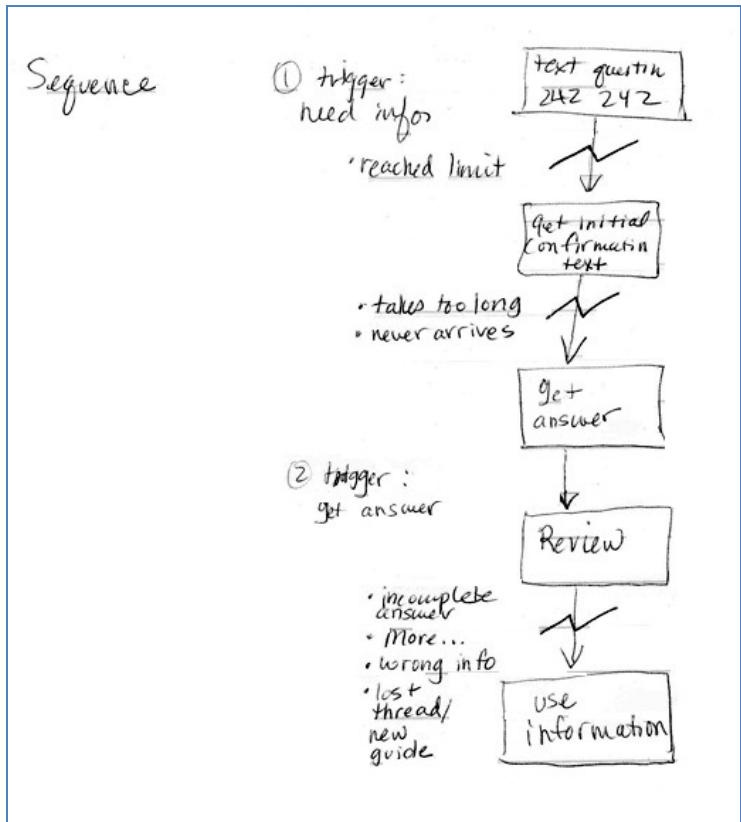 Sequence
① trigger:
need infos
text question
242 242
• reached limit
get initial
confirmatin
text
• takes too long
• never arrives
get
answer
② trigger:
get answer
Review
• incomplete
answer
• More...
• wrong info
• lost
thread/
new
guide
use
information